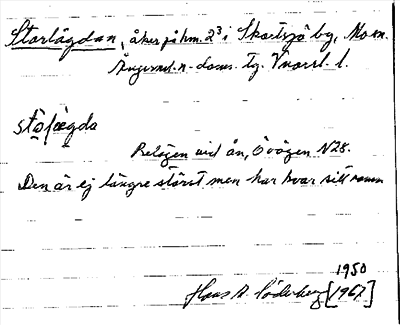 Storlägdan, åker på hm. 2³ i Skortsjö by, Mo sn.
Ångerml. n. doms. tg. Vnorrl. l.
stọ̄lægda
Belägen vid ån, Ö vägen N 28.
Den är ej längre störst men har kvar sitt namn
1950
Hans R. Söderberg [1967]